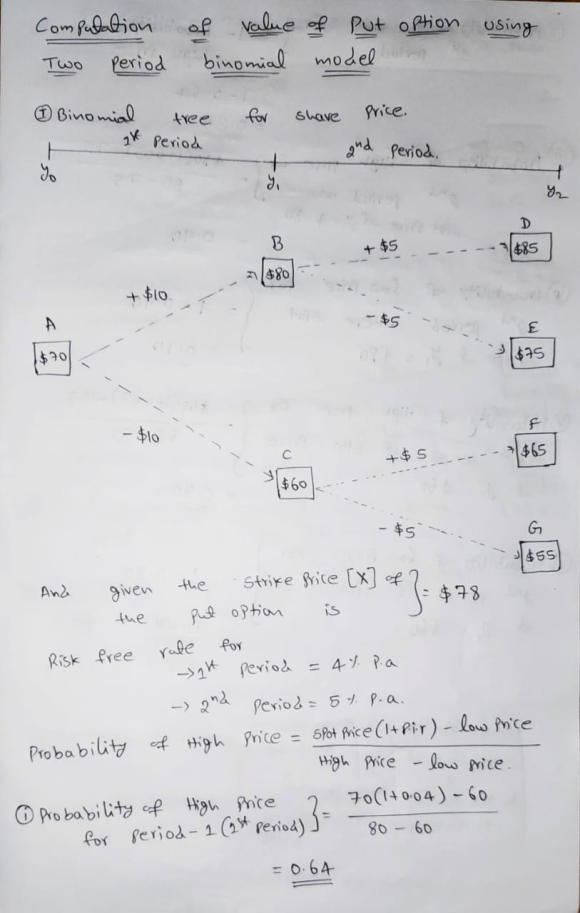 Computation of value of Put option using
Two period binomial model
I Binomial tree for share price.
1st Period
2nd Period.
y0
y1
y2
D
B
+ $5
$85
$80
+ $10
- $5
A
E
$70
$75
F
- $10
C
+ $5
$65
$60
- $5
G
$55
And given the strike price [X] of
the put option is } = $78
Risk free rate for
→ 1st Period = 4% P.a
→ 2nd Period = 5% P.a.
Probability of High Price = spot Price (1+P.i.r) - low Price
High Price - low price.
i Probability of High Price } = 70(1+0.04) - 60
for Period-1 (1st Period) 80 - 60
= 0.64